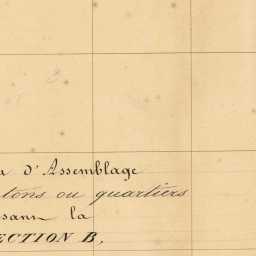 u d'Assemblage
tons ou quartiers
sant la
ECTION B,